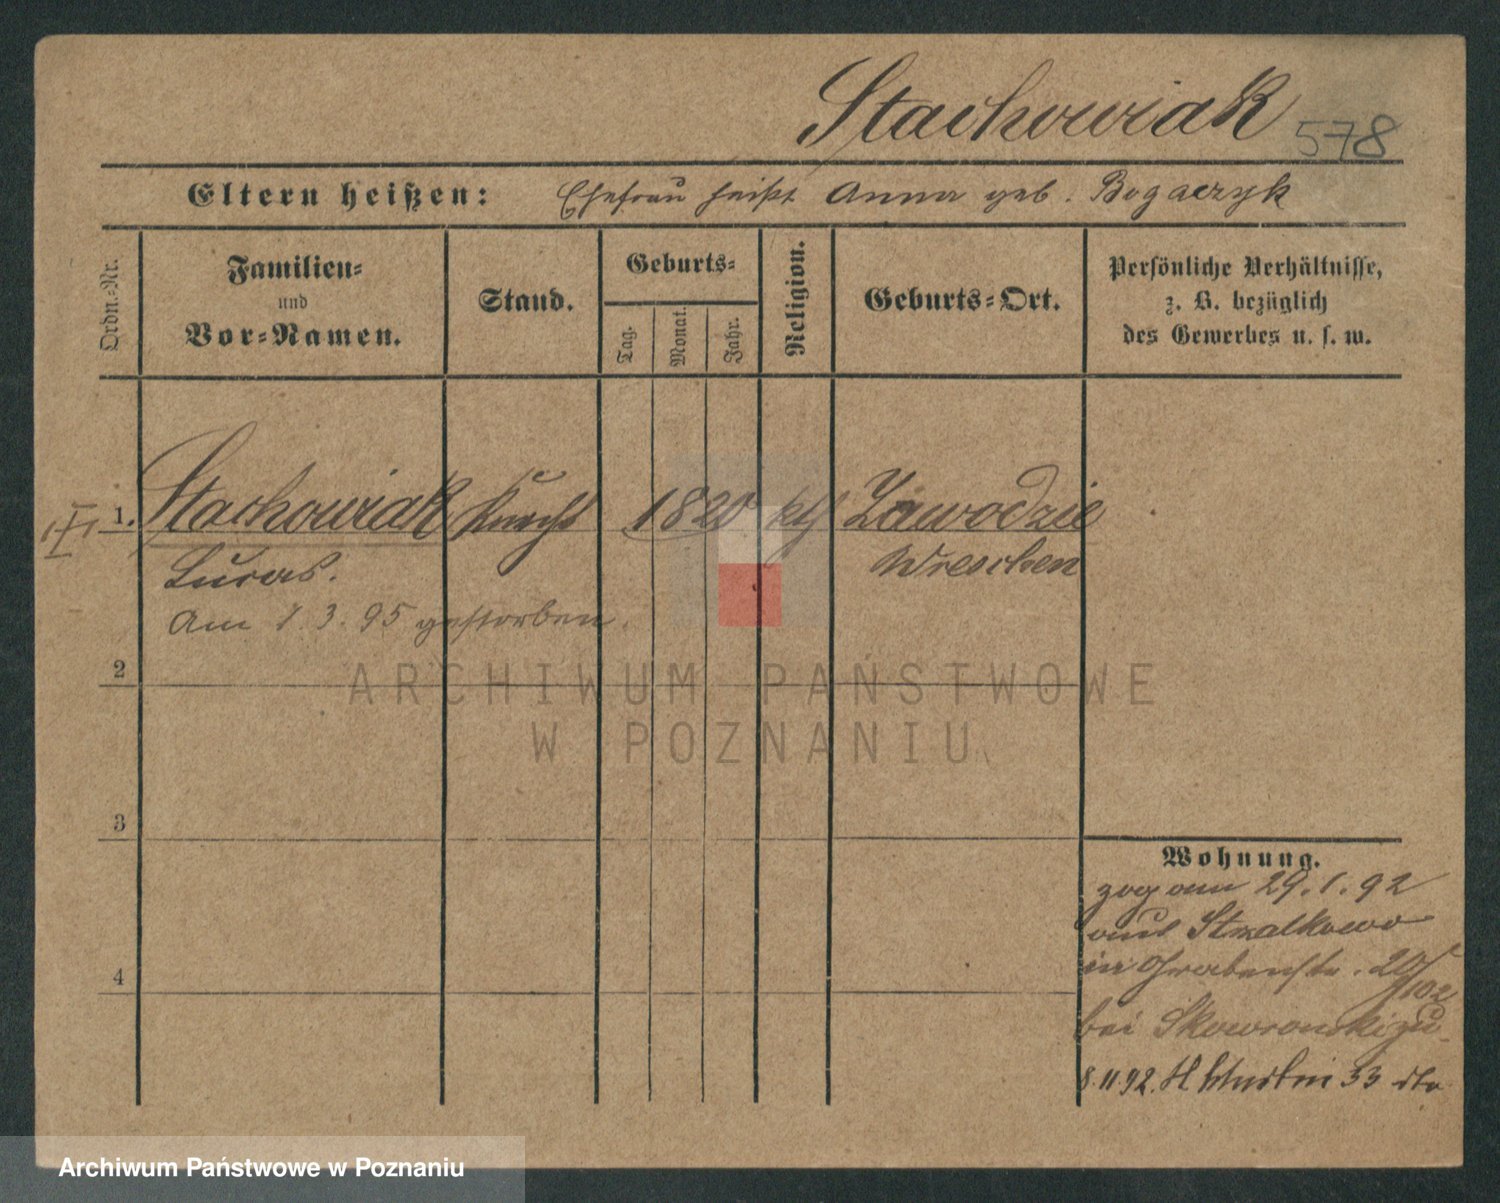 Stachowiak 578
Eltern heißen: Ehefrau heißt Anna geb. Bogaczyk
Ordn.-Nr.
Familien-
und
Vor-Namen.
Stand.
Geburts-
Tag.
Monat.
Jahr.
Religion.
Geburts-Ort.
Persönliche Verhältnisse,
z. B. bezüglich
des Gewerbes u. s. w.
1. Stachowiak Knecht 1820 kth Zawodzie
Lucas. Wreschen
Am 1.3.95 gestorben.
2
ARCHIWUM PAŃSTWOWE
W POZNANIU
3
Wohnung.
zog am 29.1.92
aus Strzalkowo
in Grabenstr. 20/
bei Skowronski zu
4
8.11.92. 33
Archiwum Państwowe w Poznaniu